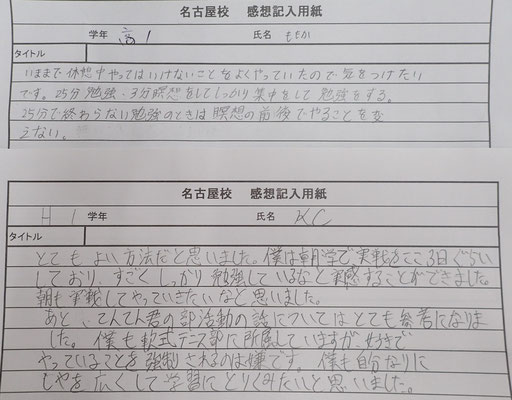 名古屋校 感想記入用紙
学年 高1 氏名 ももか
タイトル
いままで休憩中やってはいけないことをよくやっていたので気をつけたい
です。25分勉強、3分瞑想をしてしっかり集中をして勉強をする。
25分で終わらない勉強のときは瞑想の前後でやることを変
えない。
名古屋校 感想記入用紙
H1 学年 氏名 KC
タイトル
とてもよい方法だと思いました。僕は朝学で実践をここ3日ぐらい
しており、すごくしっかり勉強しているなと実感することができました。
朝も実践してやっていきたいなと思いました。
あと、てんてん君の部活動の話についてはとても参考になりま
した。僕も軟式テニス部に所属していますが、好きで
やっていることを強制されるのは嫌です。僕も自分なりに
しやを広くして学習にとりくみたいと思いました。